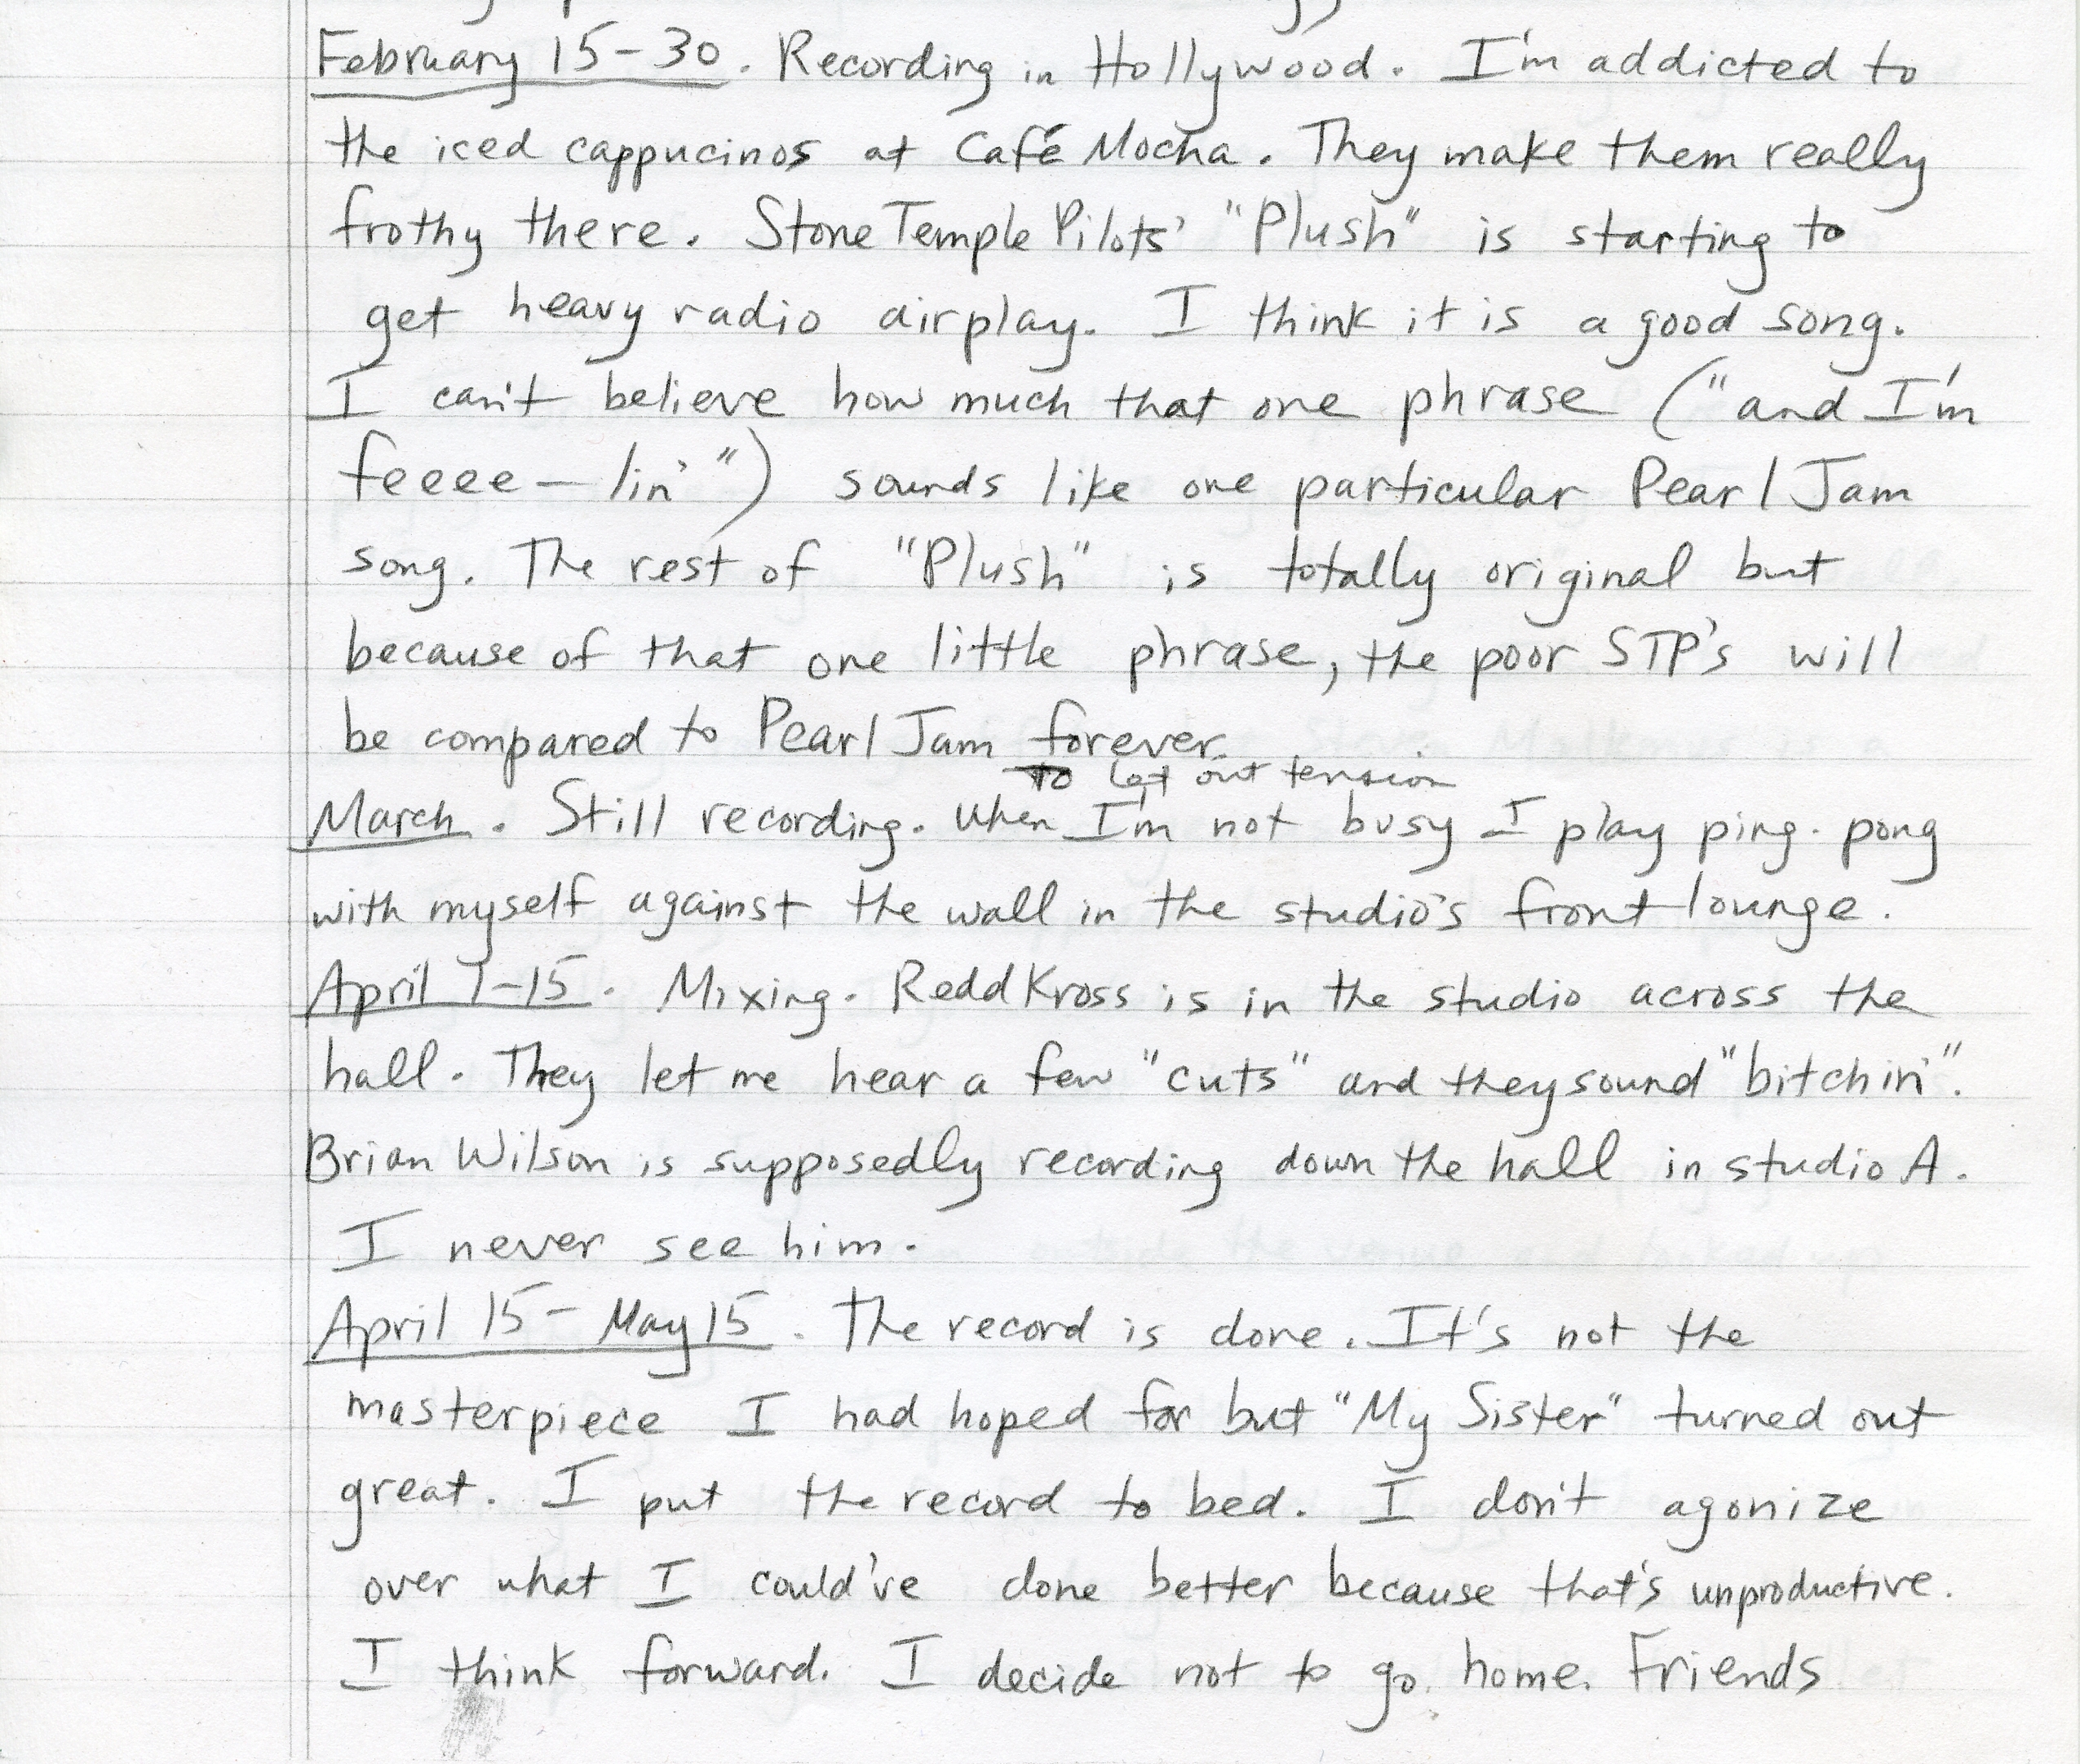 February 15-30. Recording in Hollywood. I'm addicted to
the iced cappucinos at Café Mocha. They make them really
frothy there. Stone Temple Pilots' "Plush" is starting to
get heavy radio airplay. I think it is a good song.
I can't believe how much that one phrase ("and I'm
feeee—lin'") sounds like one particular Pearl Jam
song. The rest of "Plush" is totally original but
because of that one little phrase, the poor STP's will
be compared to Pearl Jam forever.
to let out tension
March. Still recording. When I'm not busy I play ping-pong
with myself against the wall in the studio's front lounge.
April 1-15. Mixing. Redd Kross is in the studio across the
hall. They let me hear a few "cuts" and they sound "bitchin'".
Brian Wilson is supposedly recording down the hall in studio A.
I never see him.
April 15- May 15. The record is done. It's not the
masterpiece I had hoped for but "My Sister" turned out
great. I put the record to bed. I don't agonize
over what I could've done better because that's unproductive.
I think forward. I decide not to go home. Friends